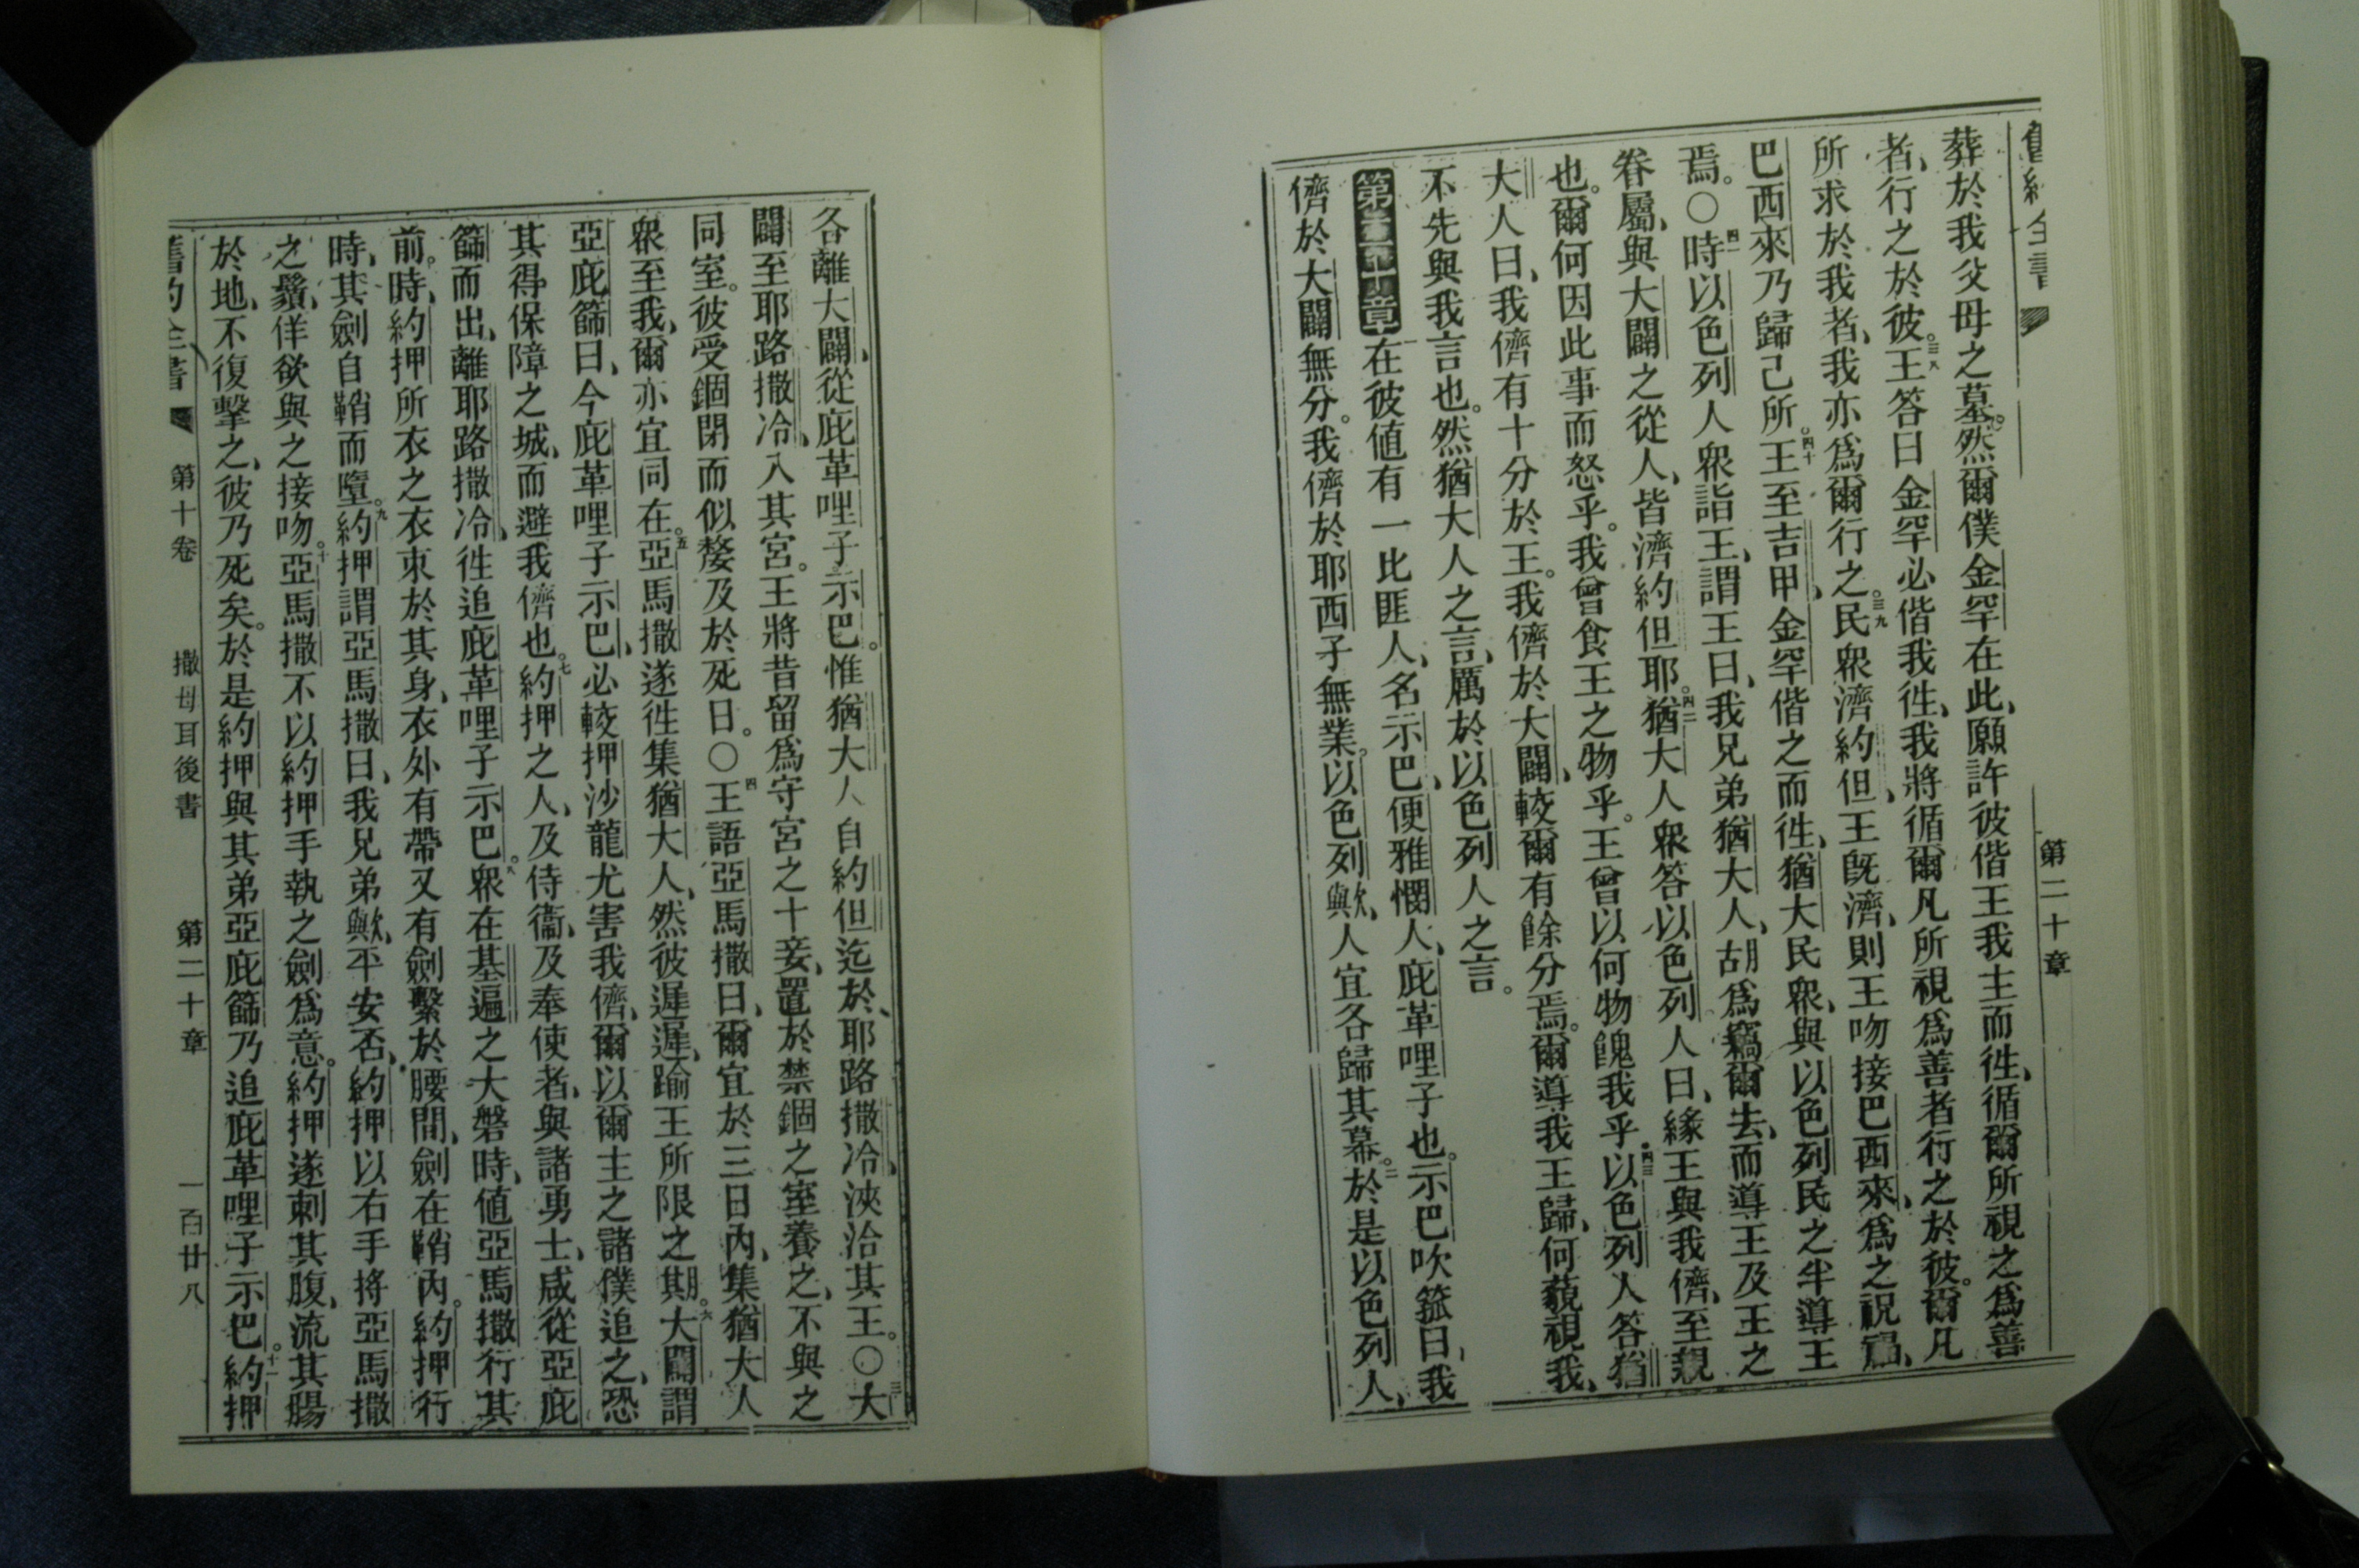 舊約全書 第二十章
葬於我父母之墓。然爾僕金罕在此、願許彼偕王我主而徃、循爾所視之為善
者、行之於彼。三八王答曰金罕必偕我徃、我將循爾凡所視為善者行之於彼。爾凡
所求於我者、我亦為爾行之。三九民眾濟約但、王既濟、則王吻接巴西來、為之祝福、
巴西來乃歸己所。四十王至吉甲、金罕偕之而徃、猶大民眾、與以色列民之半導王
焉。○四一時以色列人眾詣王、謂王曰、我兄弟猶大人、胡為竊爾去、而導王及王之
眷屬、與大闢之從人、皆濟約但耶。四二猶大人眾答以色列人曰、緣王與我儕、至親
也。爾何因此事而怒乎。我曾食王之物乎。王曾以何物餽我乎。四三以色列人答猶
大人曰、我儕有十分於王。我儕於大闢、較爾有餘分焉。爾導我王歸、何藐視我、
不先與我言也。然猶大人之言、厲於以色列人之言。
第二十章 在彼値有一比匪人、名示巴、便雅憫人、庇革哩子也。示巴吹箛曰、我
儕於大闢無分。我儕於耶西子無業。以色列歟、人宜各歸其幕。二於是以色列人、
各離大闢、從庇革哩子示巴。惟猶大人自約但迄於、耶路撒冷、浹洽其王。○三大
闢至耶路撒冷、入其宮。王將昔留為守宮之十妾、置於禁錮之室養之、不與之
同室。彼受錮閉而似嫠及於死日。○四王語亞馬撒曰、爾宜於三日內、集猶大人
眾至我、爾亦宜同在。五亞馬撒遂徃集猶大人、然彼遲遲、踰王所限之期。六大闢謂
亞庇篩曰、今庇革哩子示巴、必較押沙龍尤害我儕、爾以爾主之諸僕追之、恐
其得保障之城、而避我儕也。七約押之人、及侍衞、及奉使者、與諸勇士、咸從亞庇
篩而出、離耶路撒冷、徃追庇革哩子示巴。八眾在基遍之大磐時、値亞馬撒行其
前。時、約押所衣之衣束於其身、衣外有帶又有劍繫於腰間、劍在鞘內。約押行
時、其劍自鞘而墮。九約押謂亞馬撒曰、我兄弟歟、平安否、約押以右手將亞馬撒
之鬚、佯欲與之接吻。十亞馬撒不以約押手執之劍為意。約押遂刺其腹、流其腸
於地、不復擊之、彼乃死矣。於是約押與其弟亞庇篩乃追庇革哩子示巴。十一約押
舊約全書 第十卷 撒母耳後書 第二十章 一百廿八